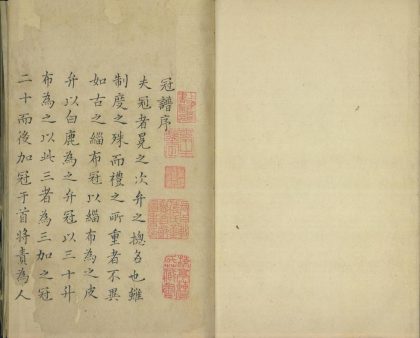 冠譜序
夫冠者冕之次弁之揔名也雖
制度之殊而禮之所重者不異
如古之緇布冠以緇布為之皮
弁以白鹿為之弁冠以三十升
布為之以此三者為三加之冠
二十而後加冠于首將責為人